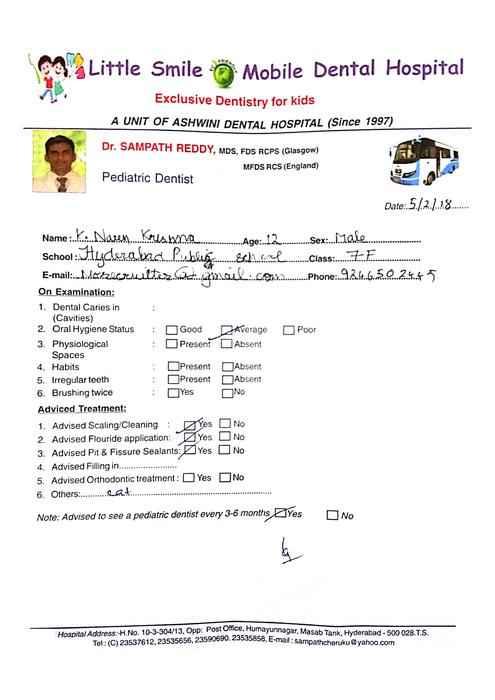 Little Smile Mobile Dental Hospital
Exclusive Dentistry for kids
A UNIT OF ASHWINI DENTAL HOSPITAL (Since 1997)
Dr. SAMPATH REDDY, MDS, FDS RCPS (Glasgow)
MFDS RCS (England)
Pediatric Dentist
Date: 5/2/18
Name: K. Naren Krishna Age: 12 Sex: Male
School: Hyderabad Public school Class: 7-F
E-mail: @gmail.com Phone: 9246502445
On Examination:
1. Dental Caries in :
(Cavities)
2. Oral Hygiene Status : Good Average Poor
3. Physiological : Present Absent
Spaces
4. Habits : Present Absent
5. Irregular teeth : Present Absent
6. Brushing twice : Yes No
Adviced Treatment:
1. Advised Scaling/Cleaning : Yes No
2. Advised Flouride application: Yes No
3. Advised Pit & Fissure Sealants: Yes No
4. Advised Filling in....................
5. Advised Orthodontic treatment : Yes No
6. Others:
Note: Advised to see a pediatric dentist every 3-6 months Yes No
Hospital Address:-H.No. 10-3-304/13, Opp: Post Office, Humayunnagar, Masab Tank, Hyderabad - 500 028.T.S.
Tel.: (C) 23537612, 23535656, 23590690. 23535858, E-mail : sampathcheruku@yahoo.com